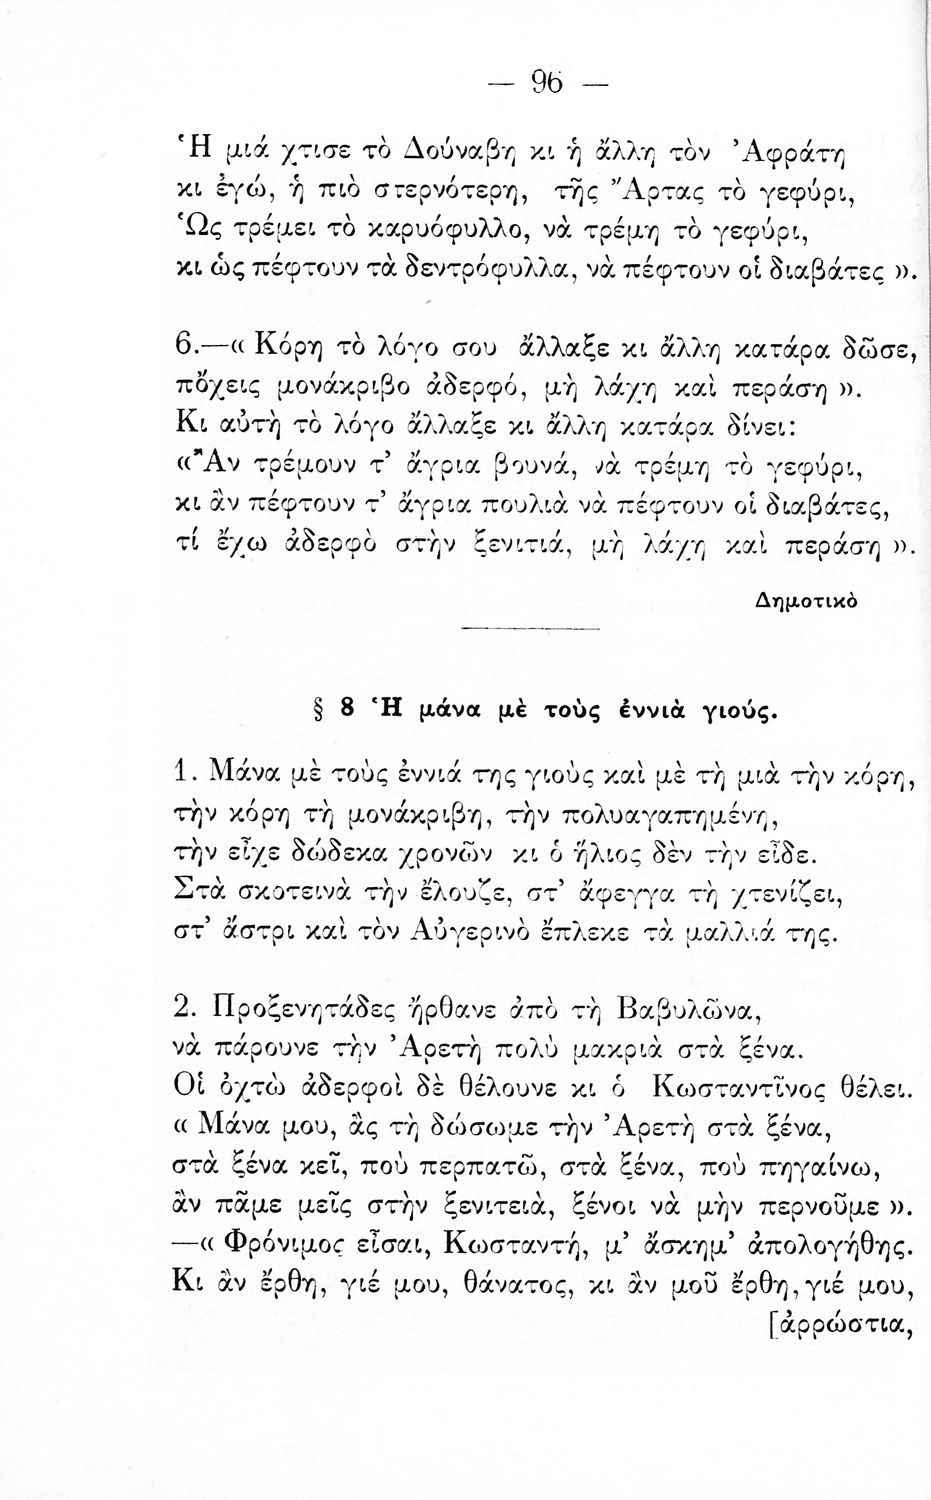 — 96 —
Ἡ μιά χτισε τὸ Δούναβη κι ἡ ἄλλη τὸν Ἀφράτη
κι ἐγώ, ἡ πιὸ στερνότερη, τῆς Ἄρτας τὸ γεφύρι,
Ὡς τρέμει τὸ καρυόφυλλο, νὰ τρέμη τὸ γεφύρι,
κι ὡς πέφτουν τὰ δεντρόφυλλα, νὰ πέφτουν οἱ διαβάτες ».
6.—« Κόρη τὸ λόγο σου ἄλλαξε κι ἄλλη κατάρα δῶσε,
πὄχεις μονάκριβο ἀδερφό, μὴ λάχη καὶ περάση ».
Κι αὐτὴ τὸ λόγο ἄλλαξε κι ἄλλη κατάρα δίνει:
«Ἂν τρέμουν τ' ἄγρια βουνά, νὰ τρέμη τὸ γεφύρι,
κι ἂν πέφτουν τ' ἄγρια πουλιὰ νὰ πέφτουν οἱ διαβάτες,
τί ἔχω ἀδερφὸ στὴν ξενιτιά, μὴ λάχη καὶ περάση ».
Δημοτικὸ
§ 8 Ἡ μάνα μὲ τοὺς ἐννιὰ γιούς.
1. Μάνα μὲ τοὺς ἐννιά της γιοὺς καὶ μὲ τὴ μιὰ τὴν κόρη,
τὴν κόρη τὴ μονάκριβη, τὴν πολυαγαπημένη,
τὴν εἶχε δώδεκα χρονῶν κι ὁ ἥλιος δὲν τὴν εἶδε.
Στὰ σκοτεινὰ τὴν ἔλουζε, στ' ἄφεγγα τὴ χτενίζει,
στ' ἄστρι καὶ τὸν Αὐγερινὸ ἔπλεκε τὰ μαλλιά της.
2. Προξενητάδες ἤρθανε ἀπὸ τὴ Βαβυλῶνα,
νὰ πάρουνε τὴν Ἀρετὴ πολὺ μακριὰ στὰ ξένα.
Οἱ ὀχτὼ ἀδερφοὶ δὲ θέλουνε κι ὁ Κωσταντῖνος θέλει.
« Μάνα μου, ἂς τὴ δώσωμε τὴν Ἀρετὴ στὰ ξένα,
στὰ ξένα κεῖ, ποὺ περπατῶ, στὰ ξένα, ποὺ πηγαίνω,
ἂν πᾶμε μεῖς στὴν ξενιτειὰ, ξένοι νὰ μὴν περνοῦμε ».
—« Φρόνιμος εἶσαι, Κωσταντή, μ' ἄσκημ' ἀπολογήθης.
Κι ἂν ἔρθη, γιέ μου, θάνατος, κι ἂν μοῦ ἔρθη, γιέ μου,
[ἀρρώστια,